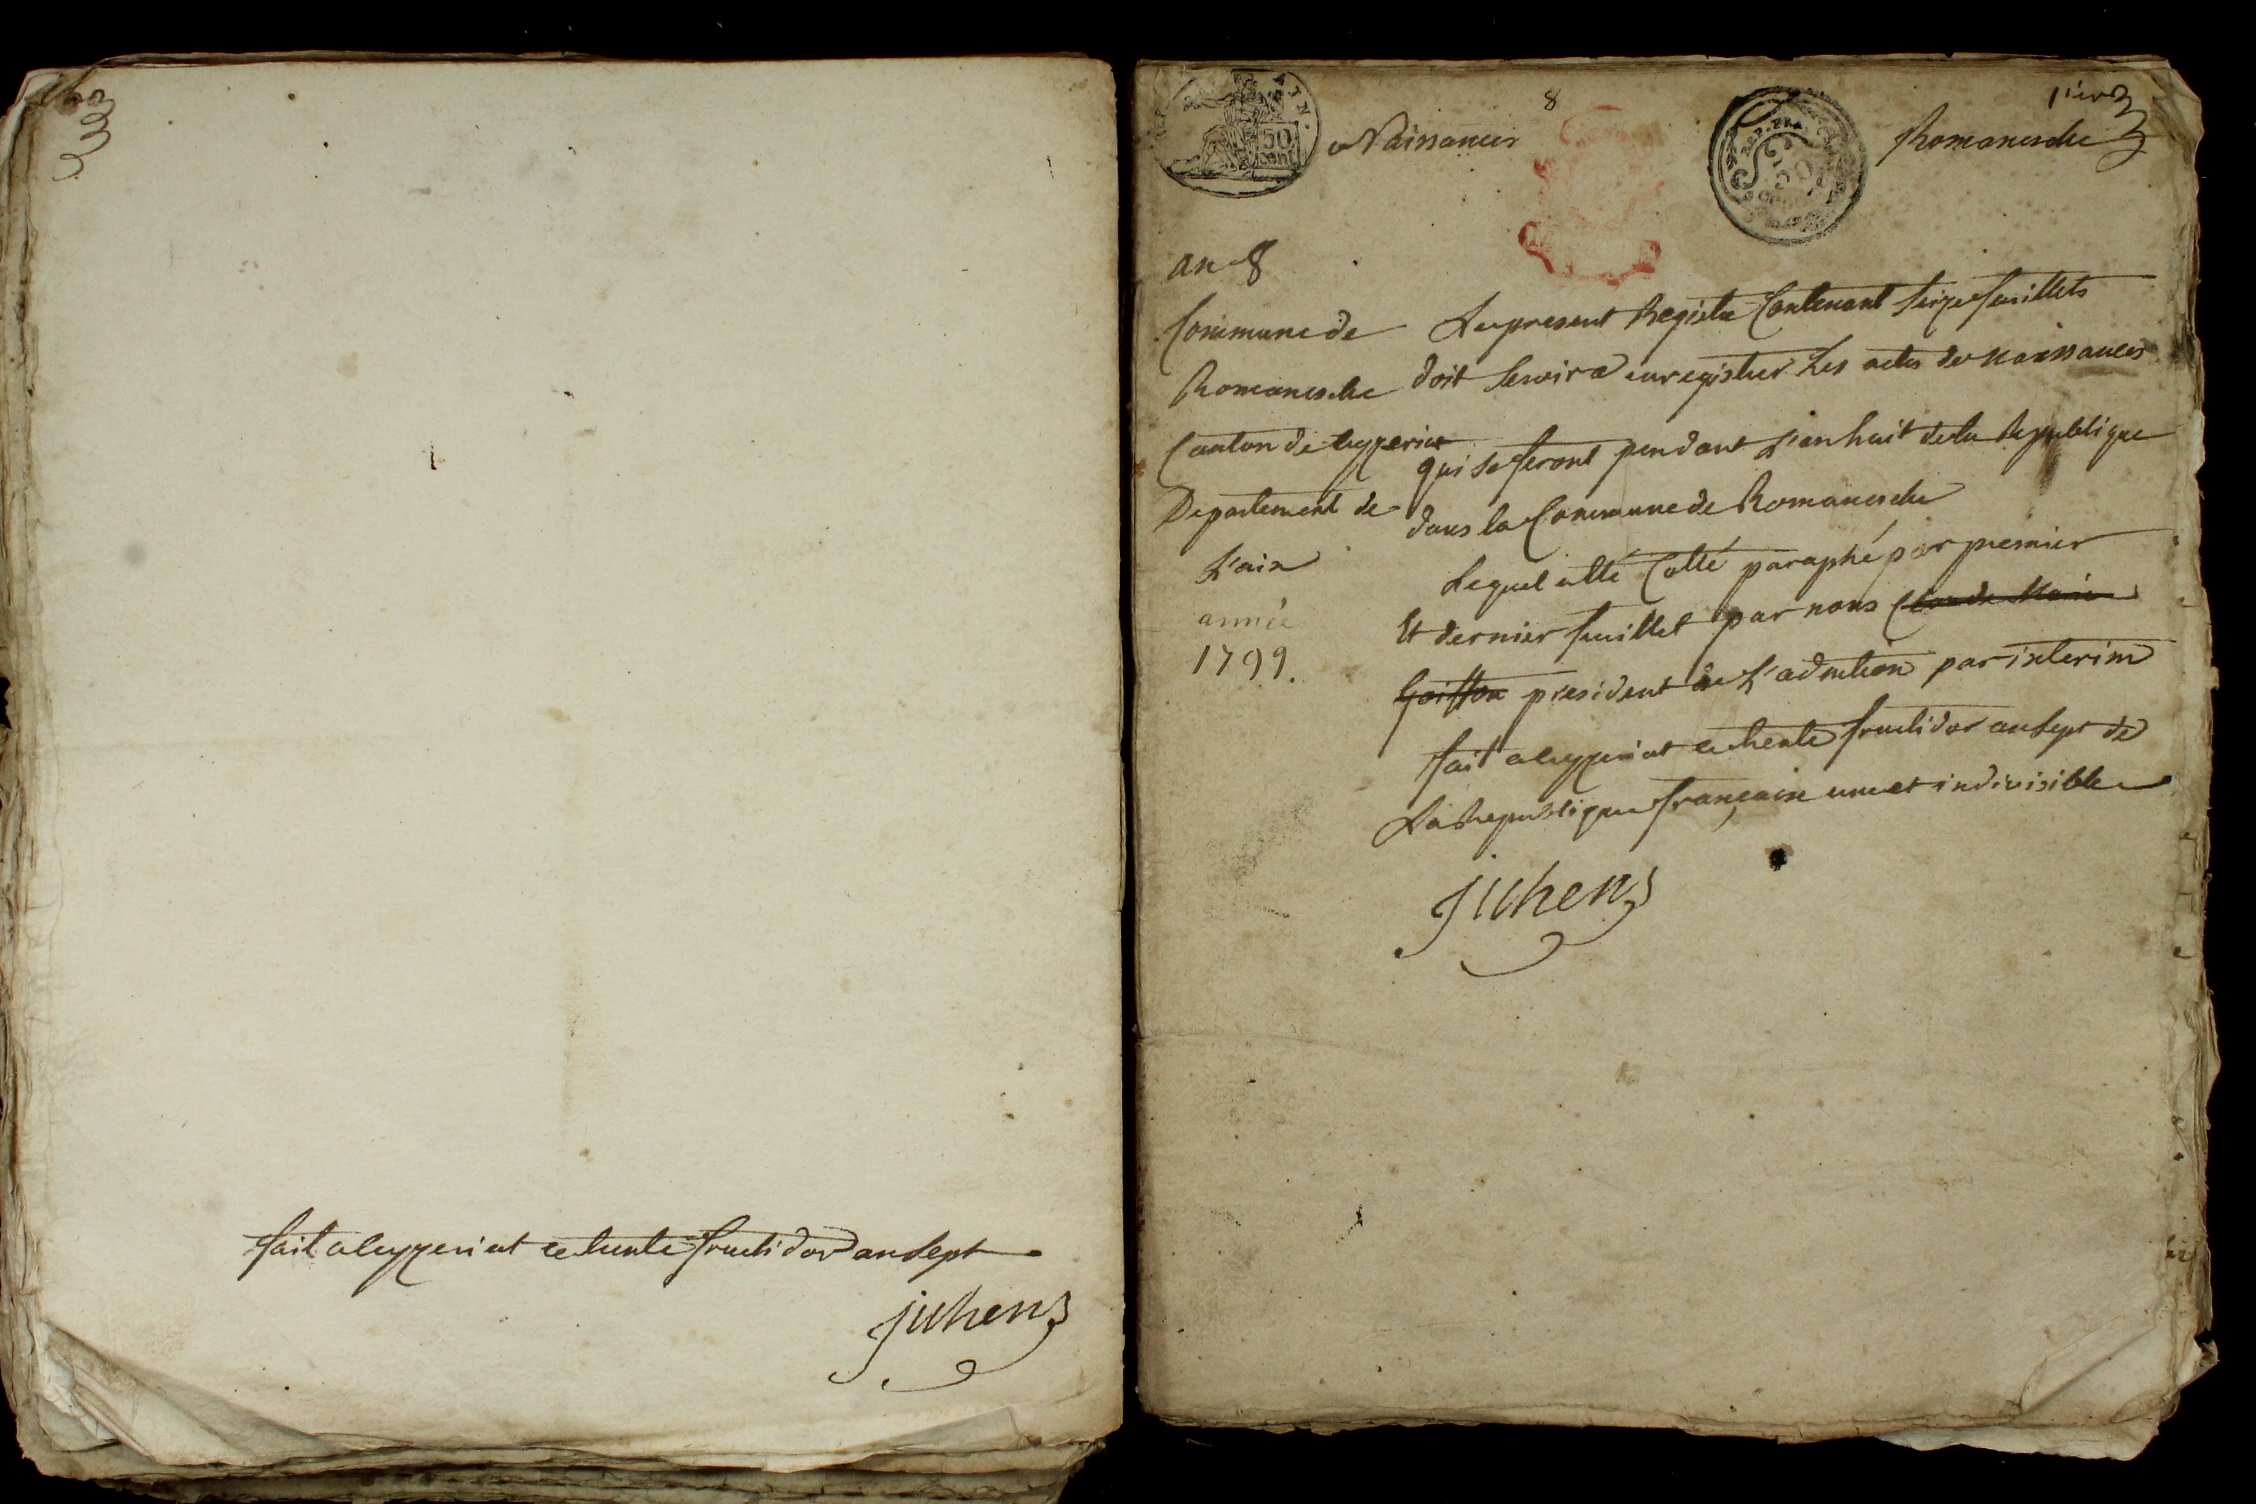 fait a Ceyzeriat ce trente fructidor an sept
juhen
8
Naissances
50
cent
REP. FRA
50
1ier
Romaneche
an 8
Commune de
Romaneche
Canton de Ceyzeriat
Departement de
L'ain
année
1799.
Le present Registre Contenant seize feuillets
doit servir a enregistrer Les actes de Naissances
qui se feront pendant L'an huit de la Republique
dans la Commune de Romaneche
Lequel a été Cotté paraphé par premier
Et dernier feuillet par nous
president de L'adm̄tion par interim
fait a Ceyzeriat ce trente fructidor an sept de
La Republique françaire une et indivisible
juhen